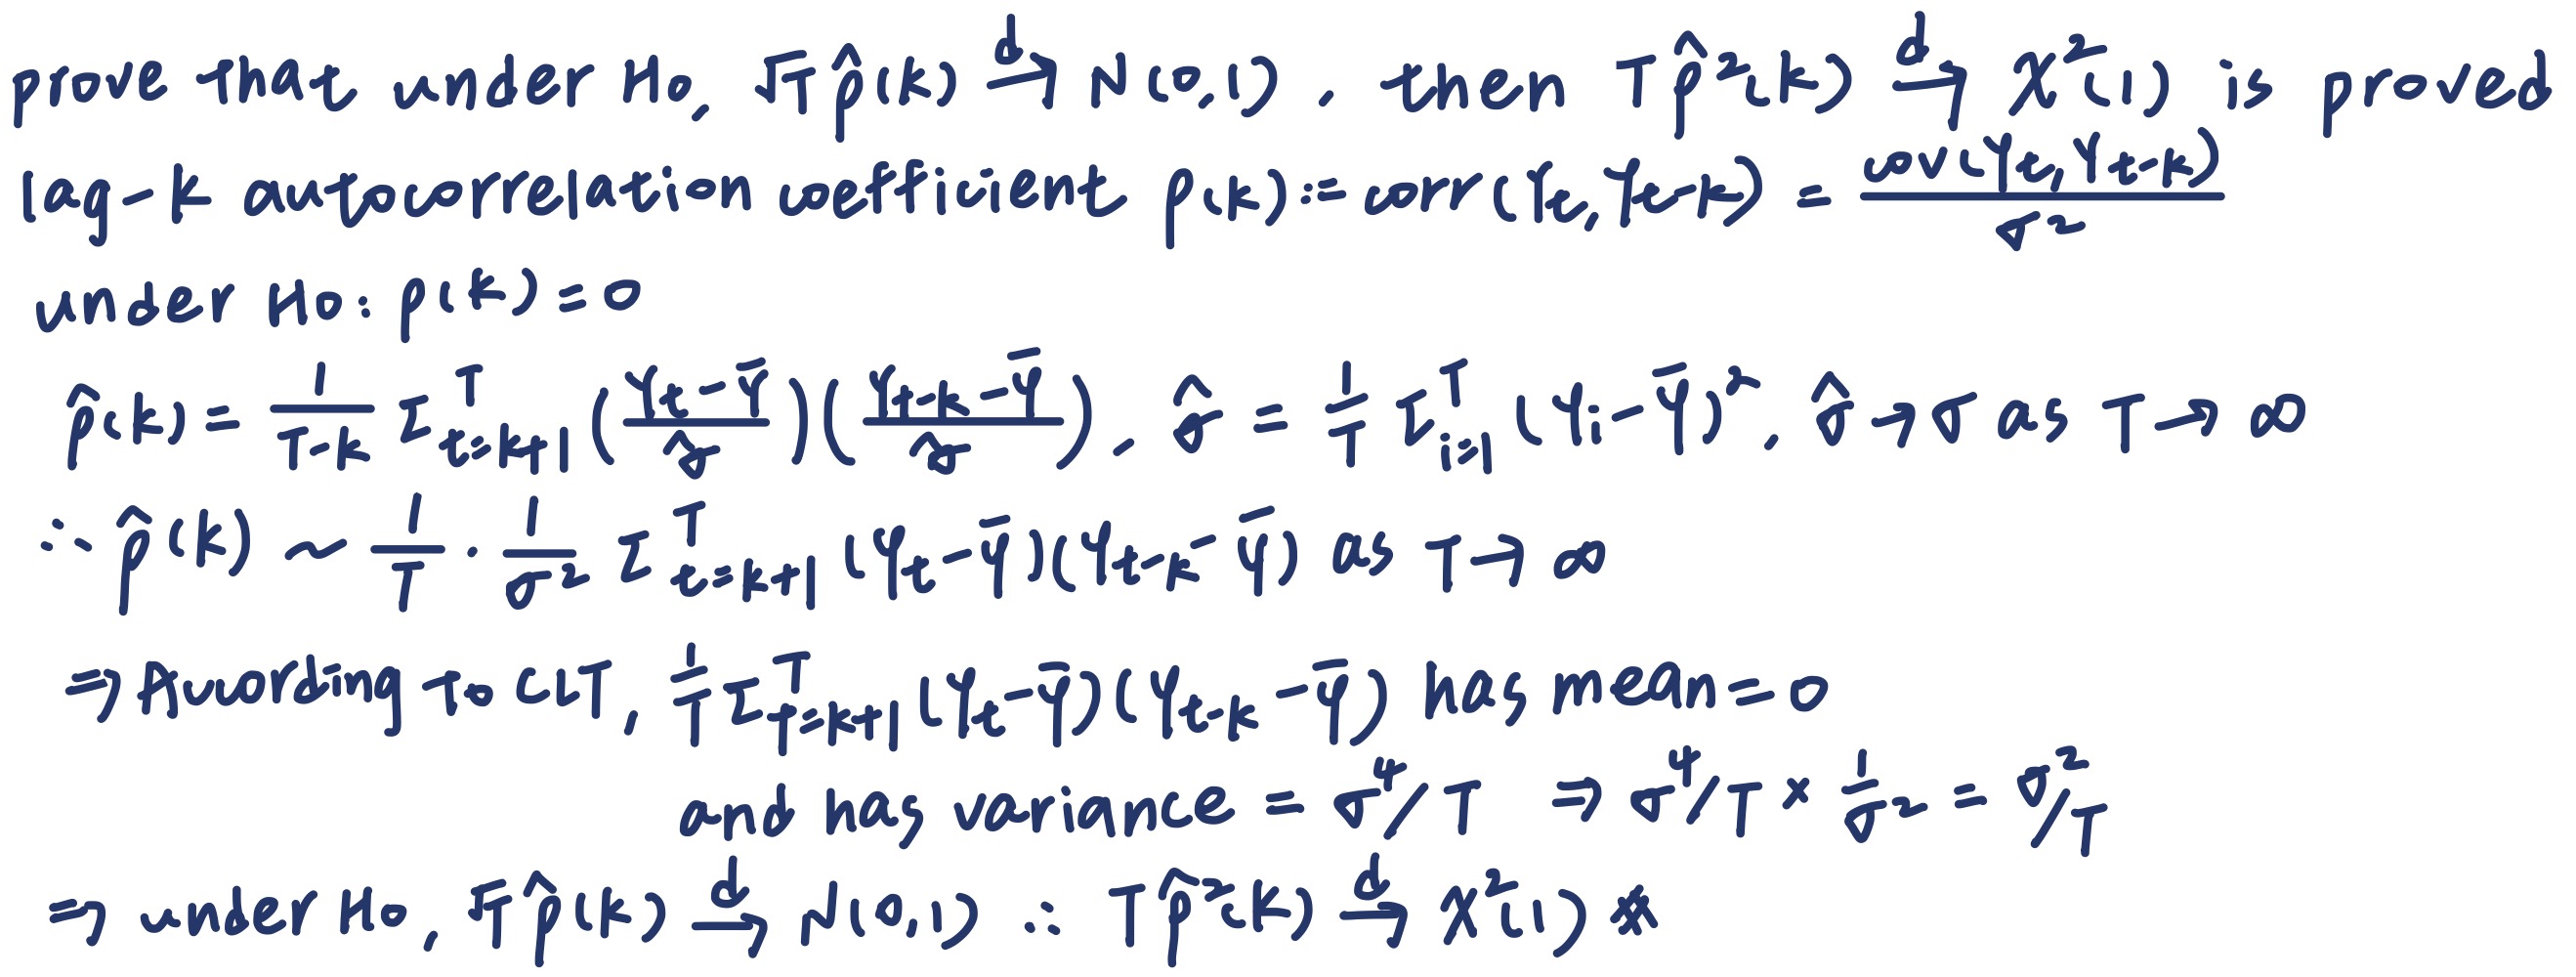 prove that under Ho, √T ρ̂(k) →ᵈ N(0,1), then T ρ̂²(k) →ᵈ χ²(1) is proved
lag-k autocorrelation coefficient ρ(k) := corr(Yt, Yt-k) = cov(Yt, Yt-k) / σ²
under Ho: ρ(k) = 0
ρ̂(k) = 1/(T-k) Σ_{t=k+1}^T ((Yt - Ȳ)/σ̂)((Yt-k - Ȳ)/σ̂), σ̂ = 1/T Σ_{i=1}^T (Yi - Ȳ)², σ̂ → σ as T → ∞
∴ ρ̂(k) ~ 1/T · 1/σ² Σ_{t=k+1}^T (Yt - Ȳ)(Yt-k - Ȳ) as T → ∞
⇒ According to CLT, 1/T Σ_{t=k+1}^T (Yt - Ȳ)(Yt-k - Ȳ) has mean = 0
and has variance = σ⁴/T ⇒ σ⁴/T × 1/σ² = σ²/T
⇒ under Ho, √T ρ̂(k) →ᵈ N(0,1) ∴ T ρ̂²(k) →ᵈ χ²(1) ※